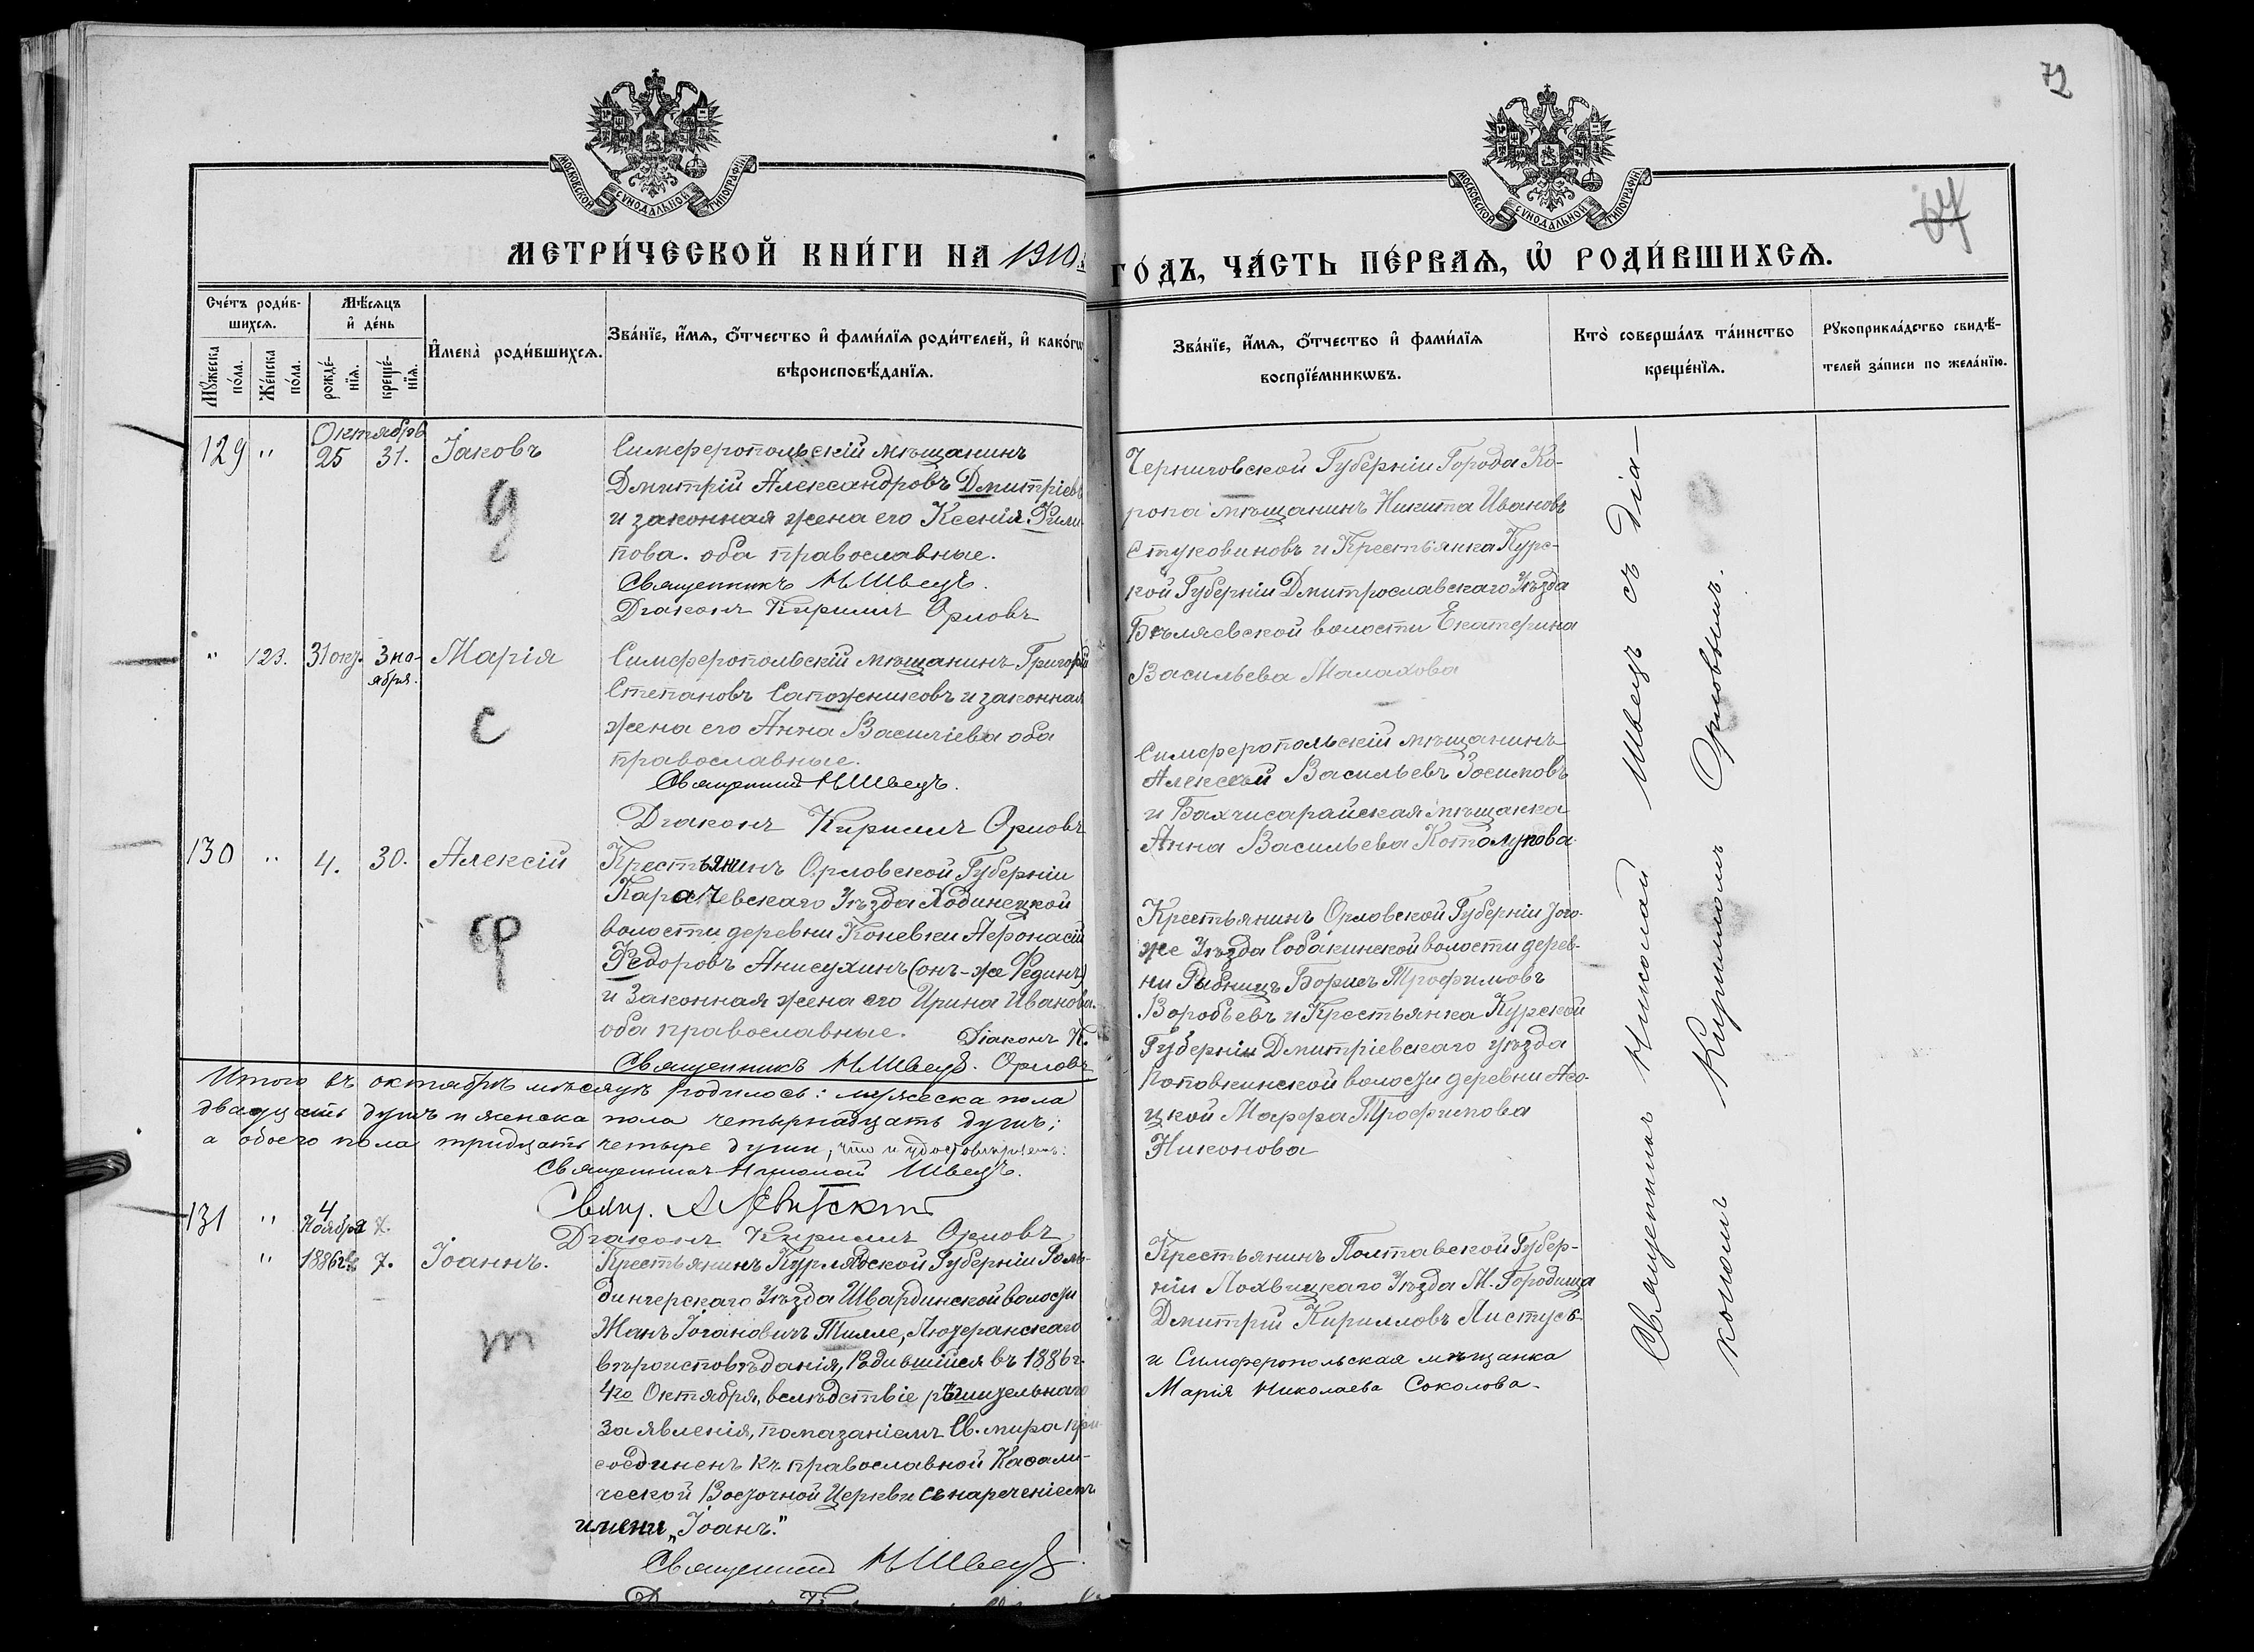 72
67
МОСКОВСКОЙ СѴНОДАЛЬНОЙ ТИПОГРАФІИ
МОСКОВСКОЙ СѴНОДАЛЬНОЙ ТИПОГРАФІИ
МЕТРИ́ЧЕСКОЙ КНИ́ГИ НА 1910
ГО́ДЪ, ЧА́СТЬ ПЕ́РВАѦ, Ѡ РОДИ́ВШИХСѦ.
Сче́тъ роди́в-
шихсѧ.
Мѣ́сѧцъ
и҆ де́нь
Мꙋжеска
по́ла.
Же́нска
по́ла.
рожде́-
нїѧ.
креще́-
нїѧ.
И҆мена̀ роди́вшихсѧ.
Зва́нїе, и҆́мѧ, ѻ҆́тчество и҆ фами́лїѧ роди́телей, и҆ како́гѡ
вѣроисповѣ́данїѧ.
Зва́нїе, и҆́мѧ, ѻ҆́тчество и҆ фами́лїѧ
воспрїе́мникѡвъ.
Кто̀ соверша́лъ та́инство
креще́нїѧ.
Рꙋкоприкла́дство свидѣ́-
телей за́писи по жела́нїю.
Октябрь
129 " 25 31. Іаковъ
Симферопольскій мѣщанинъ
Дмитрій Александровъ Дмитріевъ
и законная жена его Ксенія Фили-
пова. оба православные.
Священникъ Н Швецъ.
Діаконъ Кириллъ Орловъ
Д
Черниговской Губерніи Города Ко-
ропа мѣщанинъ Никита Ивановъ
Стуковиновъ и Крестьянка Курс-
кой Губерніи Дмитрославскаго Уѣзда
Бѣляевской волости Екатерина
Васильева Малахова
" 123. 31 окт. 3 но-
ября.
Марія
Симферопольскій мѣщанинъ Григорій
Степановъ Сапожниковъ и законная
жена его Анна Василіева оба
православные.
Священникъ Н Швецъ.
Діаконъ Кириллъ Орловъ
С
Симферопольскій мѣщанинъ
Алексѣй Васильевъ Зосимовъ
и Бахчисарайская мѣщанка
Анна Васильева Котолупова.
130 " 4. 30. Алексій
Крестьянинъ Орловской Губерніи
Карачевскаго Уѣзда Лодинецкой
волости деревни Коневки Афонасій
Федоровъ Анисухинъ (онъ-же Фединъ)
и Законная жена его Ирина Иванова.
оба православные. Діаконъ К.
Священникъ Н Швецъ. Орловъ
Ф
Крестьянинъ Орловской Губерніи того-
же Уѣзда Собакинской волости дерев-
ни Рыбницъ Борисъ Трофимовъ
Воробьевъ и Крестьянка Курской
Губерніи Дмитріевскаго уѣзда
Поповкинской волости деревни Асо-
цкой Марфа Трофимова
Никонова
Итого въ октябрѣ мѣсяцѣ родилось: мужеска пола
двадцать душъ и женска пола четырнадцать душъ;
а обоего пола тридцать четыре души, что и удостовѣряемъ:
Священникъ Николай Швецъ.
Свящ. А Левитскій
Діаконъ Кириллъ Орловъ
131 " 4 Ноября 7.
" 1886 г. 7. Іоаннъ.
Крестьянинъ Курляндской Губерніи Голь-
дингерскаго Уѣзда Швардинской волости
Жанъ Іогановичъ Тилле, Лютеранскаго
вѣроисповѣданія, Родившійся въ 1886 г.
4го Октября, вслѣдствіе рѣшительнаго
заявленія, помазаніемъ Св. мира при-
соединенъ къ православной Каѳоли-
ческой Восточной Церкви съ нареченіемъ
имени „Іоанъ."
Священникъ Н Швецъ
Т
Крестьянинъ Полтавской Губер-
ніи Лохвицкаго Уѣзда М. Городища
Дмитрій Кирилловъ Листусъ
и Симферопольская мѣщанка
Марія Николаева Соколова.
Священникъ Николай Швецъ съ діа-
кономъ Кирилломъ Орловымъ.